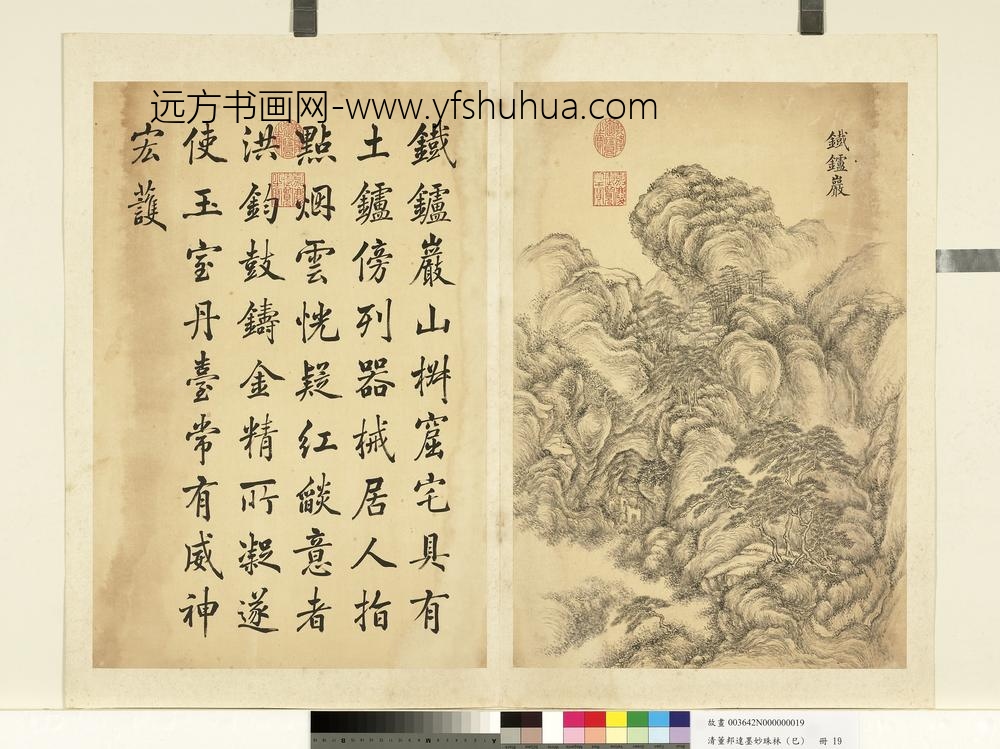 远方书画网-www.yfshuhua.com
鐵鑪巖
鐵鑪巖山樹窟宅具有
土鑪傍列器械居人指
點烟雲恍疑紅燄意者
洪鈞鼓鑄金精所凝遂
使玉室丹臺常有威神
宏護
故畫 003642N000000019
清董邦達墨妙珠林（巳） 冊 19